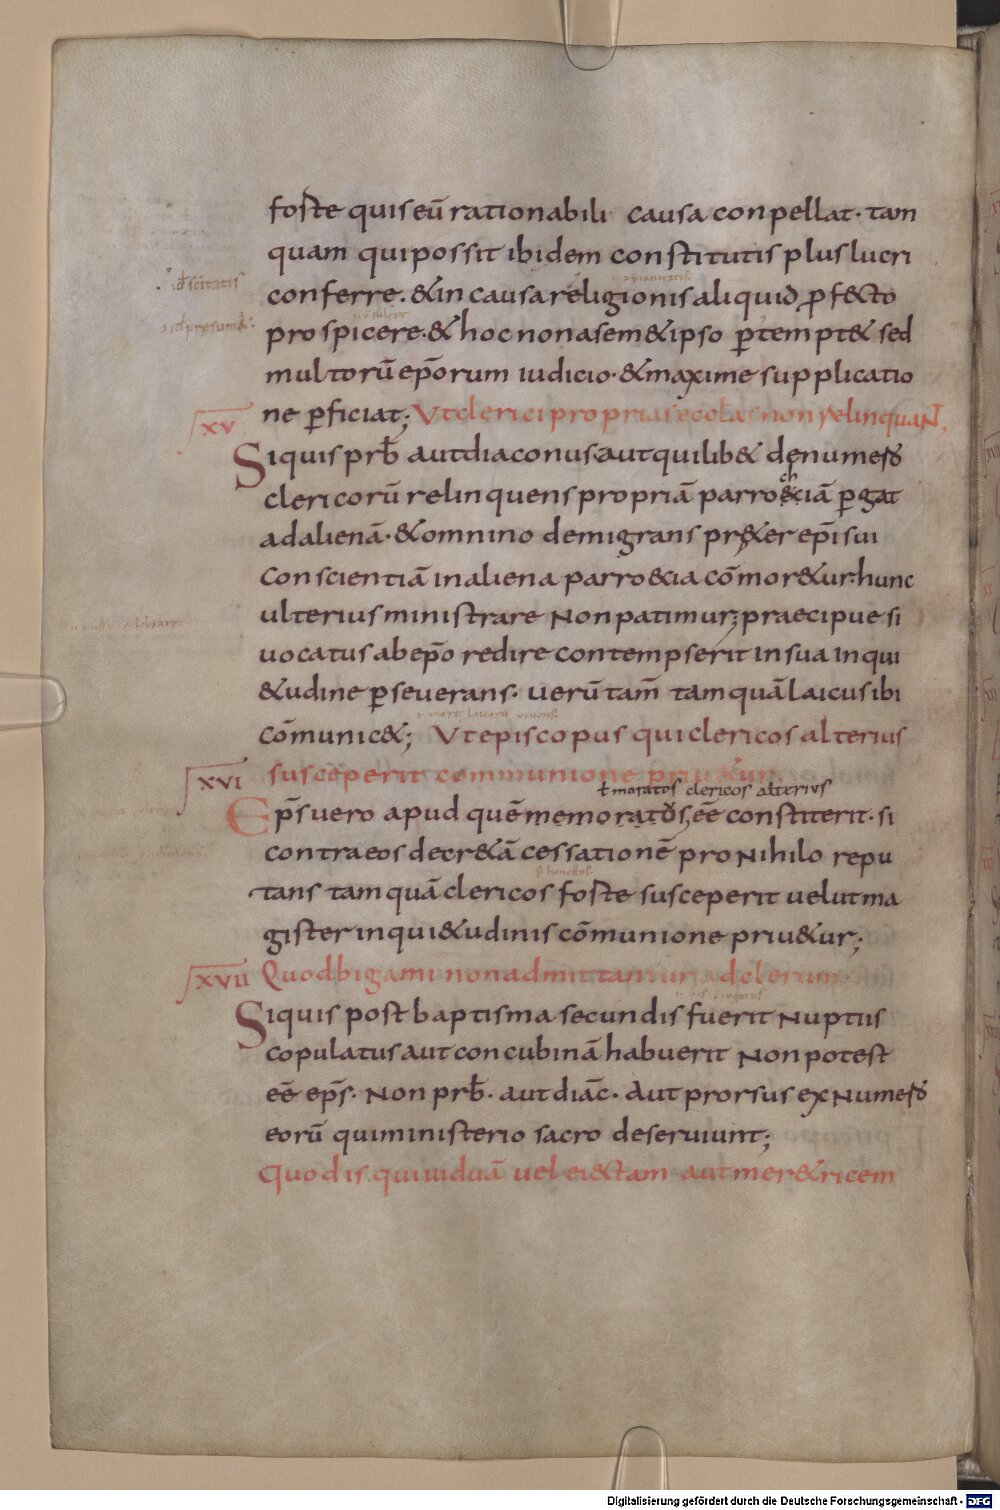 foste quis eū rationabili causa conpellat · tam
quam qui possit ibidem constitutis plus lucri
conferre . & in causa religionis aliquid ꝓfecto
prospicere · & hoc non a sem&ipso ꝑtempt& sed
multorū ep̄orum iudicio · & maxime supplicatio
ne ꝑficiat; Ut clerici proprias eccl̄as non relinquaNt
XV
Siquis prb̄ aut diaconus aut quilib& de numero
clericorū relinquens propriā parro&iā ꝑgat
ad alienā · & omnino demigrans pr&er ep̄i sui
conscientiā in aliena parro&ia cōmor&ur · hunc
ulterius ministrare Non patimur; praecipue si
uocatus ab ep̄o redire contempserit in sua inqui
&udine ꝑseuerans · uerū tam̄ tamquā laicus ibi
cōmunic&; Ut episcopus qui clericos alterius
XVI
susceperit communione priu&ur
ł moratos clericos alterius
Ep̄s uero apud quē memoratos eē constiterit · si
contra eos decr&ā cessationē pro Nihilo repu
tans tamquā clericos foste susceperit uelut ma
gister inqui&udinis cōmunione priu&ur;
XVII Quod bigami non admittantur ad clerum
Siquis post baptisma secundis fuerit Nuptiis
copulatus aut concubinā habuerit Non potest
eē ep̄s · Non prb̄ · aut diāc · Aut prorsus ex Numero
eorū qui ministerio sacro deseruiunt;
Quod is qui uiduā uel eiectam aut mer&ricem
Digitalisierung gefördert durch die Deutsche Forschungsgemeinschaft - DFG